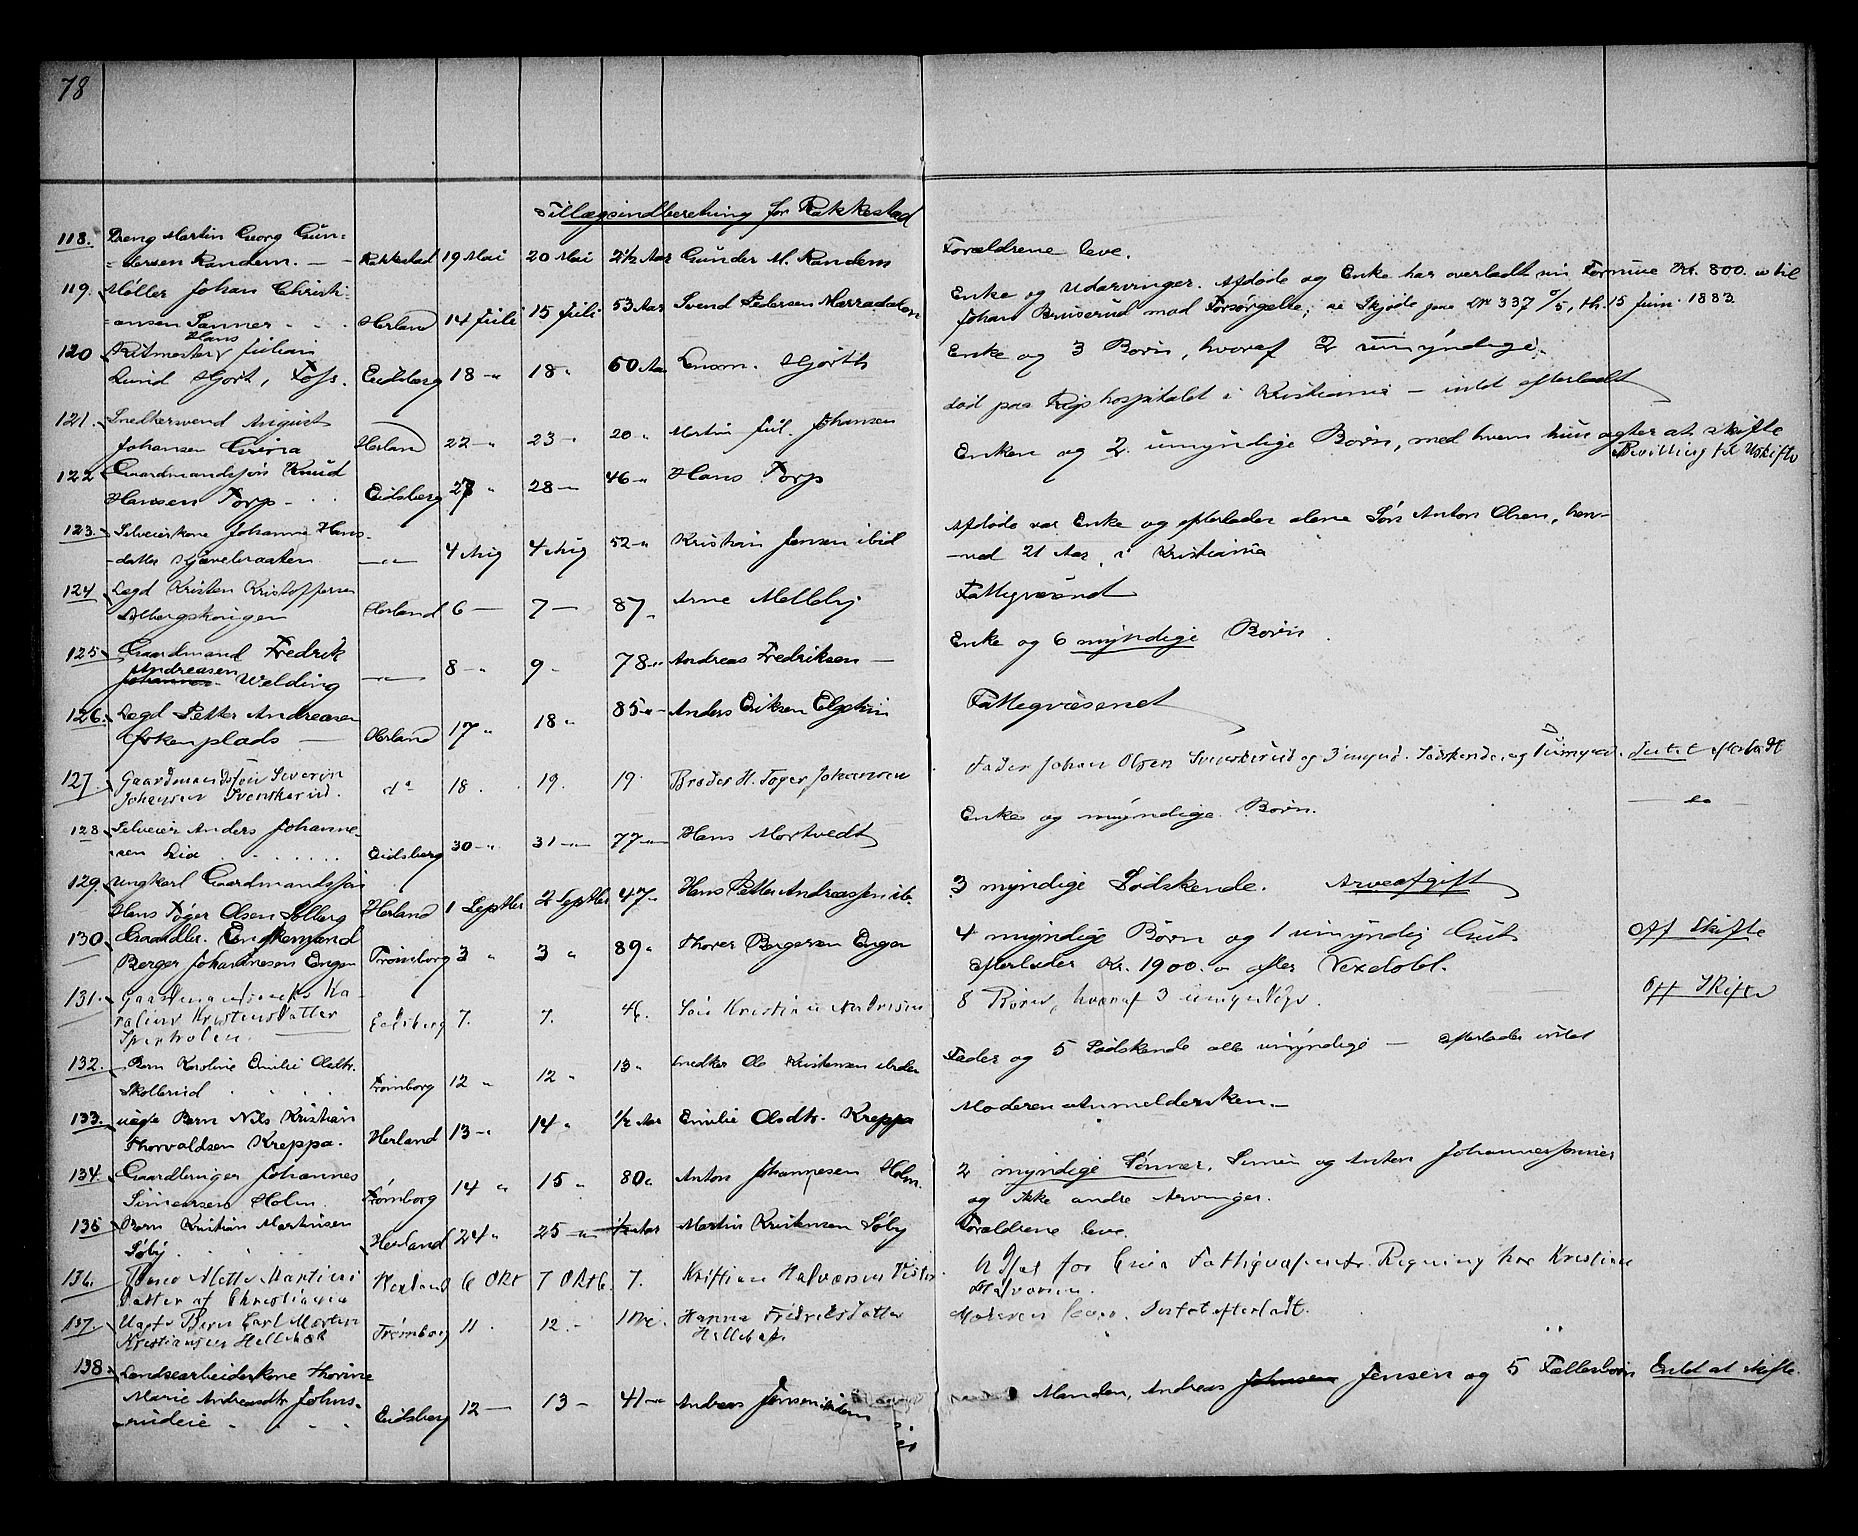 78
Tillægsindberetning for Rakkestad
118. Dreng Martin Georg Gün-
dersen Randem. Rakkestad 19 Mai 20 Mai 2½ Aar Günder M. Randem Forældrene leve.
119. Møller Johan Christi- Enke og Udarvinger. Afdøde og Enke har overladt sin Formue Kr. 800. til
ansen Sanner Herland 14 Juli 15 Juli 53 Aar Svend Pedersen Marradalen Johan Bruserud mod Forsørgelse, se Skjøde 15 Juni 1883
Hans
120 Ritmester Julian
Lund Hjort, Foss. Eidsberg 18 -"- 18 " 60 Aar Hjorth Enke og 3 Børn, hvoraf 2 umyndige.
121. Snedkersvend August død paa Rigshospitalet i Kristiania - intet efterladt
Johansen Herland 22 -"- 23 -"- 20 " Martin Jul. Johansen
122 Gaardmandssøn Knud Enken og 2 umyndige Børn, med hvem hun agter at skifte
Hansen Torp Eidsberg 27 " 28 -"- 46 -"- Hans Torp Bevilling til Uskifte
123. Selveierkone Johanne Hans- Afdøde var Enke og efterlader alene Søn Anton Olsen, hen-
datter -"- 4 Aug 4 Aug 52 -"- Kristian Jensen ibid ved 21 Aar, i Kristiania
124 Lægd Kristen Kristoffersen
Herland 6 - 7 - 87 " Arne Melleby Fattigvæsnet
125 Gaardmand Fredrik
Andreasen
Johannes Welding -"- 8 -"- 9 - 78 -"- Andreas Fredriksen Enke og 6 myndige Børn.
126. Lægd Petter Andreasen
plads Herland 17 " 18 " 85 -"- Anders Eriksen Fattigvæsenet
127. Gaardmandssøn Severin
Johansen Svenskerud. do 18. 19. 19. Broder H. Toger Johansen Fader Johan Olsen Svenskerud og 3 mynd. Sødskende og umynd. Intet efterladt
128 Selveier Anders Johanne-
sen Lia Eidsberg 30 -"- 31 -"- 77 -"- Hans Mortvedt Enke og myndige Børn. do
129. Ungkarl Gaardmandssøn
Hans Tøger Olsen Solberg Herland 1 Septbr 2 Septbr 47 " Hans Petter Andreassen ib. 3 myndige Sødskende. Arveafgift
130 Gaardbr. Enkemand 4 myndige Børn og 1 umyndig Gut Off Skifte
Berger Johannesen Engen Trømborg 3 " 3 " 89 " Thorer Bergersen Engen efterlader Kr. 1900 efter
131. Gaardmandsenke Ka-
roline Kristensdatter Eidsberg 7. 7. 46. Søn Kristian Andersen 8 Børn, hvoraf 3 umyndige. Off Skifte
132. Barn Karoline Emilie Olsdtr.
Skollerud Trømborg 12 " 12 " 13 " Snedker Ole Kristensen Fader og 5 Sødskende alle umyndige - efterlader intet
133. uægte Barn Nils Kristian
Thorvaldsen Kreppa. Herland 13 -"- 14 " ½ Aar Emilie Olsdtr. Kreppa Moderen Anmeldersken.
134. Gaardbruger Johannes 2 myndige Sønner, Simen og Anton Johannessønner
Simensen Holm. Trømborg 14 " 15 " 80 " Anton Johannesen Holm. og ikke andre Arvinger.
135 Barn Kristian Martinsen
Søby Herland 24 " 25 -"- ½ Aar Martin Kristensen Søby Forældrene leve.
136. Mette Martine for Fattigvæsenets Regning hos Kristian
Datter af Christiania Herland 6 Okt 7 Oktb. 7. Kristian Halvorsen Halvorsen.
137. Uægte Barn Carl Morten
Kristiansen Trømborg 11. 12. - Hanna Fredriksdatter Moderen lever. Intet efterladt.
138. Landsarbeiderkone Thorine
Marie Andreasdtr Johns-
rudeie Eidsberg 12 - 13 - 41 -"- Andreas Jensen Manden, Andreas Johnsen Jensen og 5 Fællesbørn Enkl at skifte.